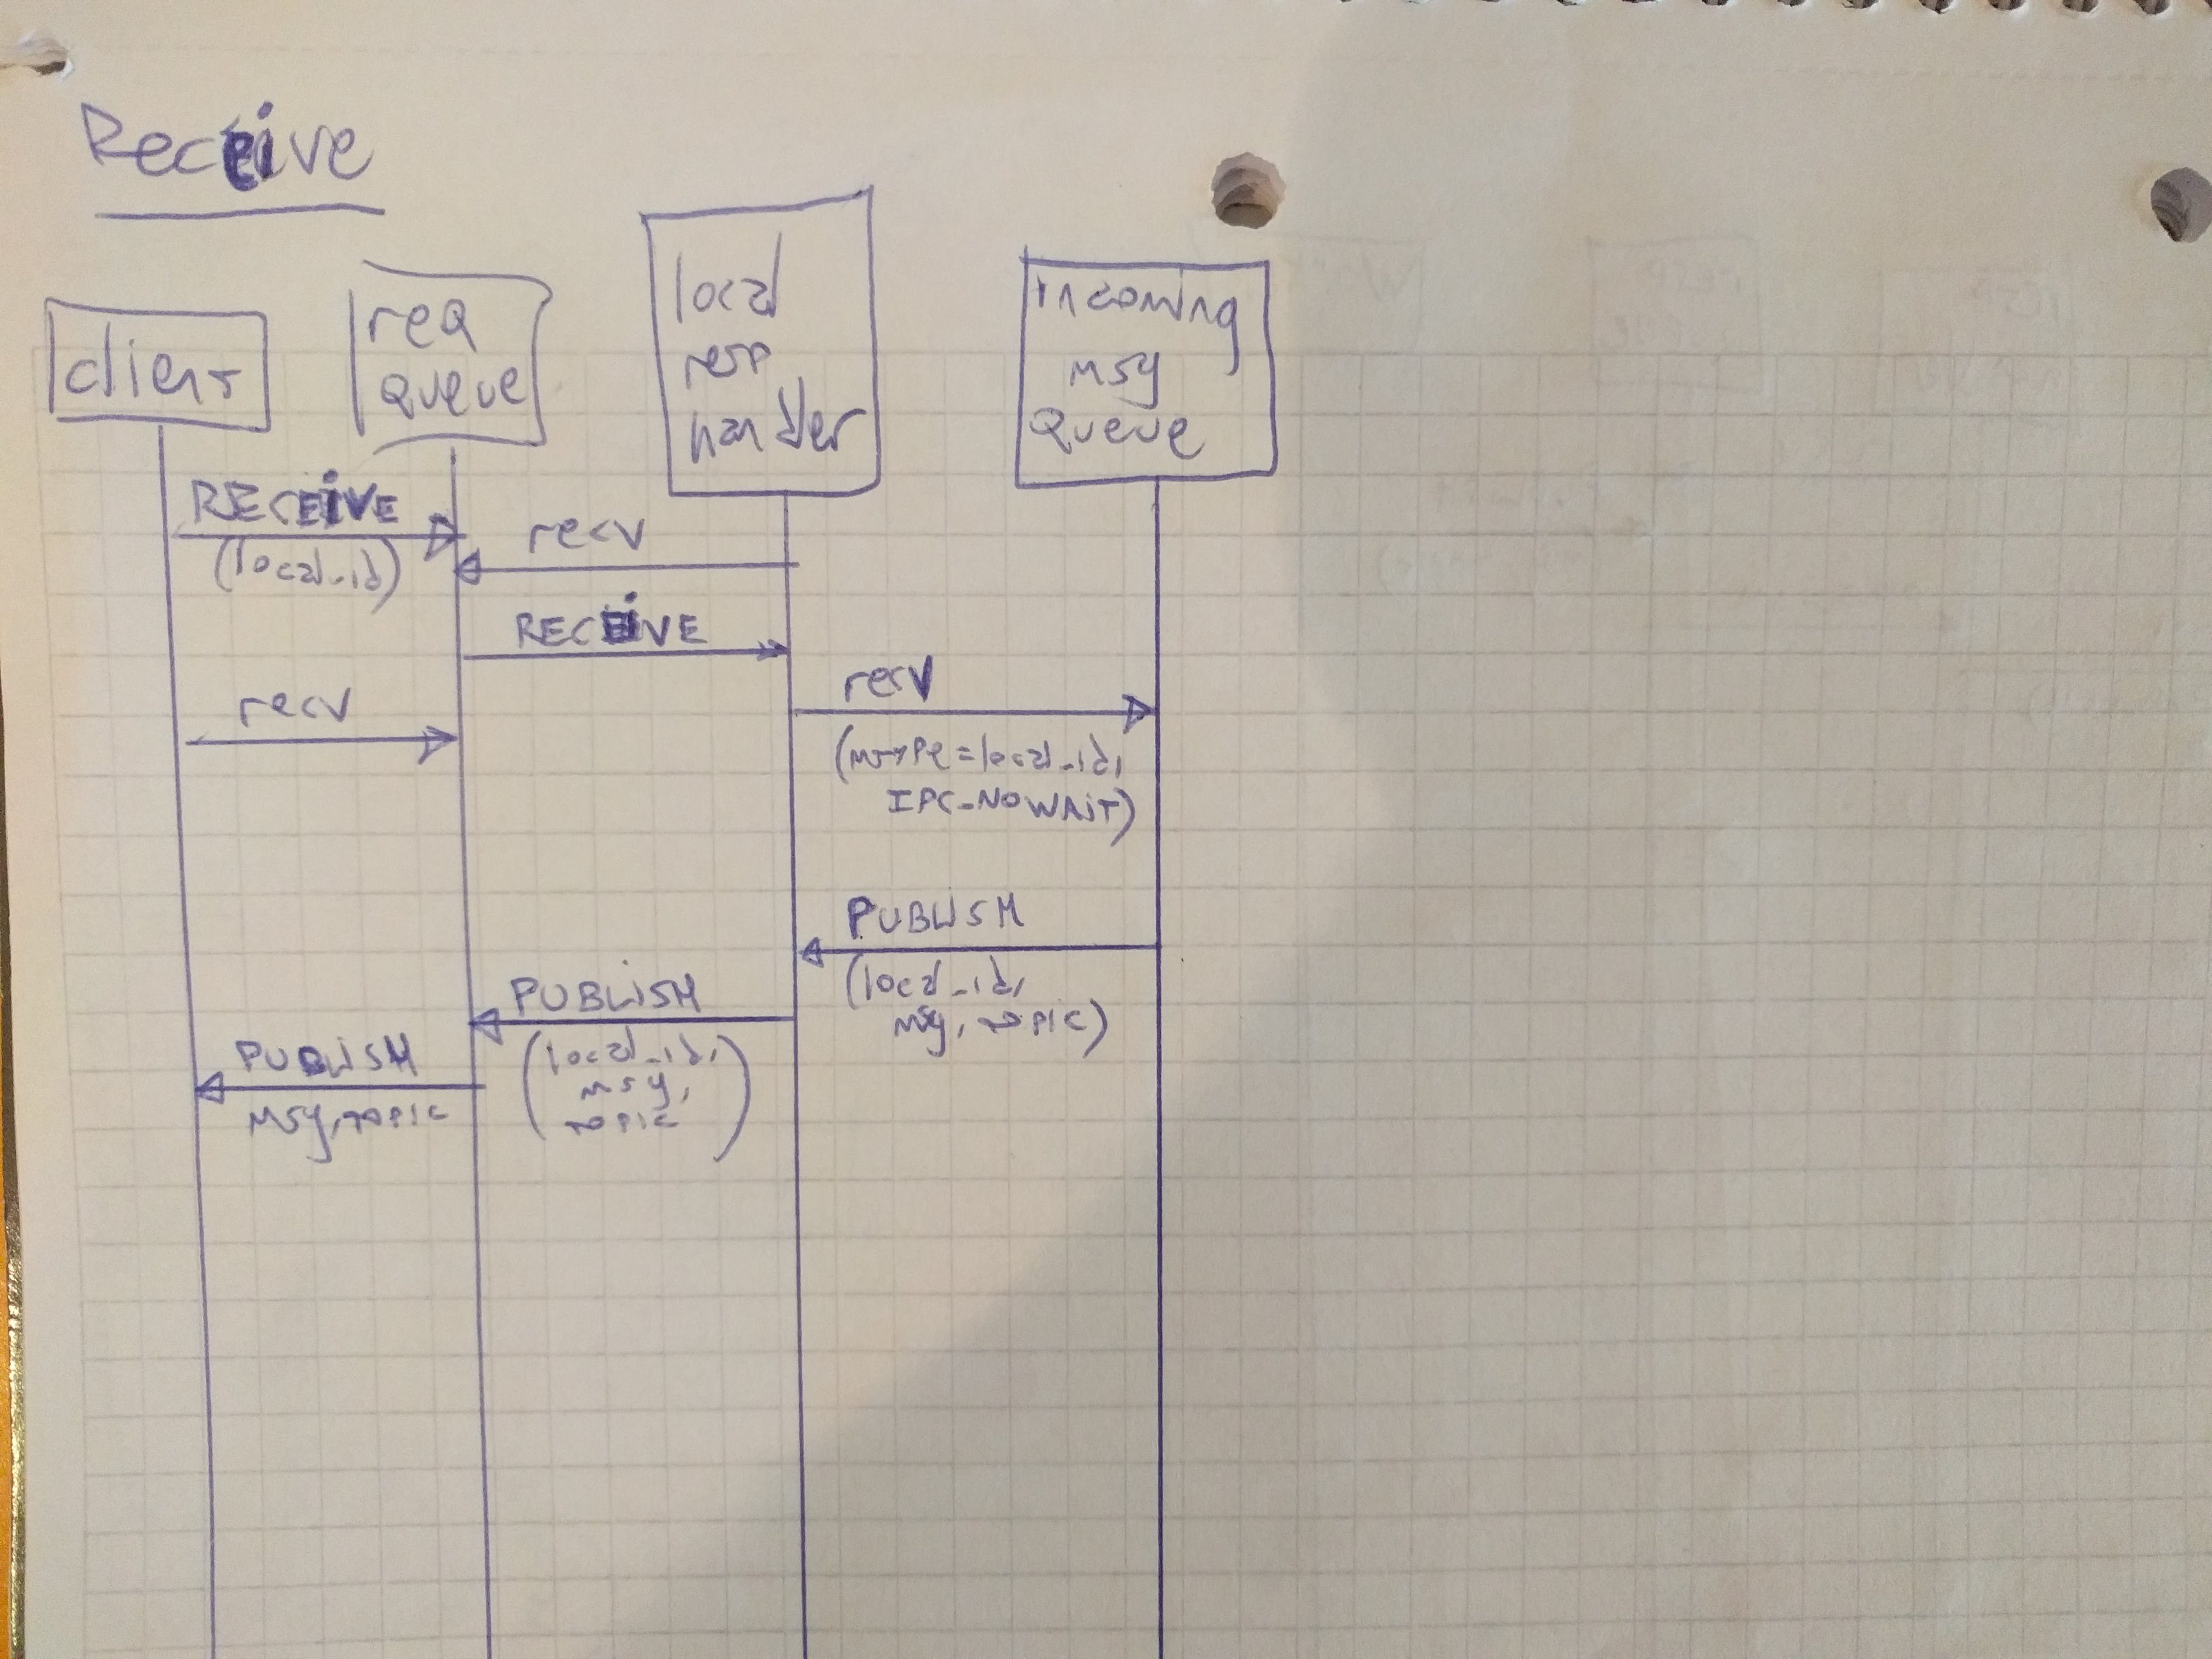 Receive
client
req
queue
local
resp
handler
incoming
msg
queue
RECEIVE
(local_id)
recv
RECEIVE
recv
recv
(mtype=local_id,
IPC_NOWAIT)
PUBLISH
(local_id,
msg, topic)
PUBLISH
(local_id,
msg,
topic)
PUBLISH
msg, topic